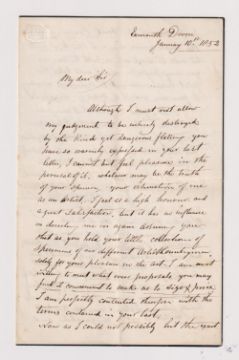 Exmouth Devon
January 10th 1852
My dear Sir
Although I must not allow
my judgment to be entirely destroyed
by the kind yet dangerous flattery you
have so warmly expressed in your last
letter, I cannot but feel pleasure in the
perusal of it, whatever may be the truth
of your opinion, your estimation of me
as an artist, I feel as a high honour and
a great satisfaction, but it has no influence
in me again
that as you told your little collection of
specimens of our different
solely for your pleasure in the art. I am most
willing to meet what ever proposals you may
find it convenient to make as to size & price
I am perfectly contented therefore with the
terms contained in your last,
Now as I could not possibly but the